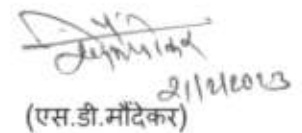 21/2/2023
(एस.डी.मौंदेकर)